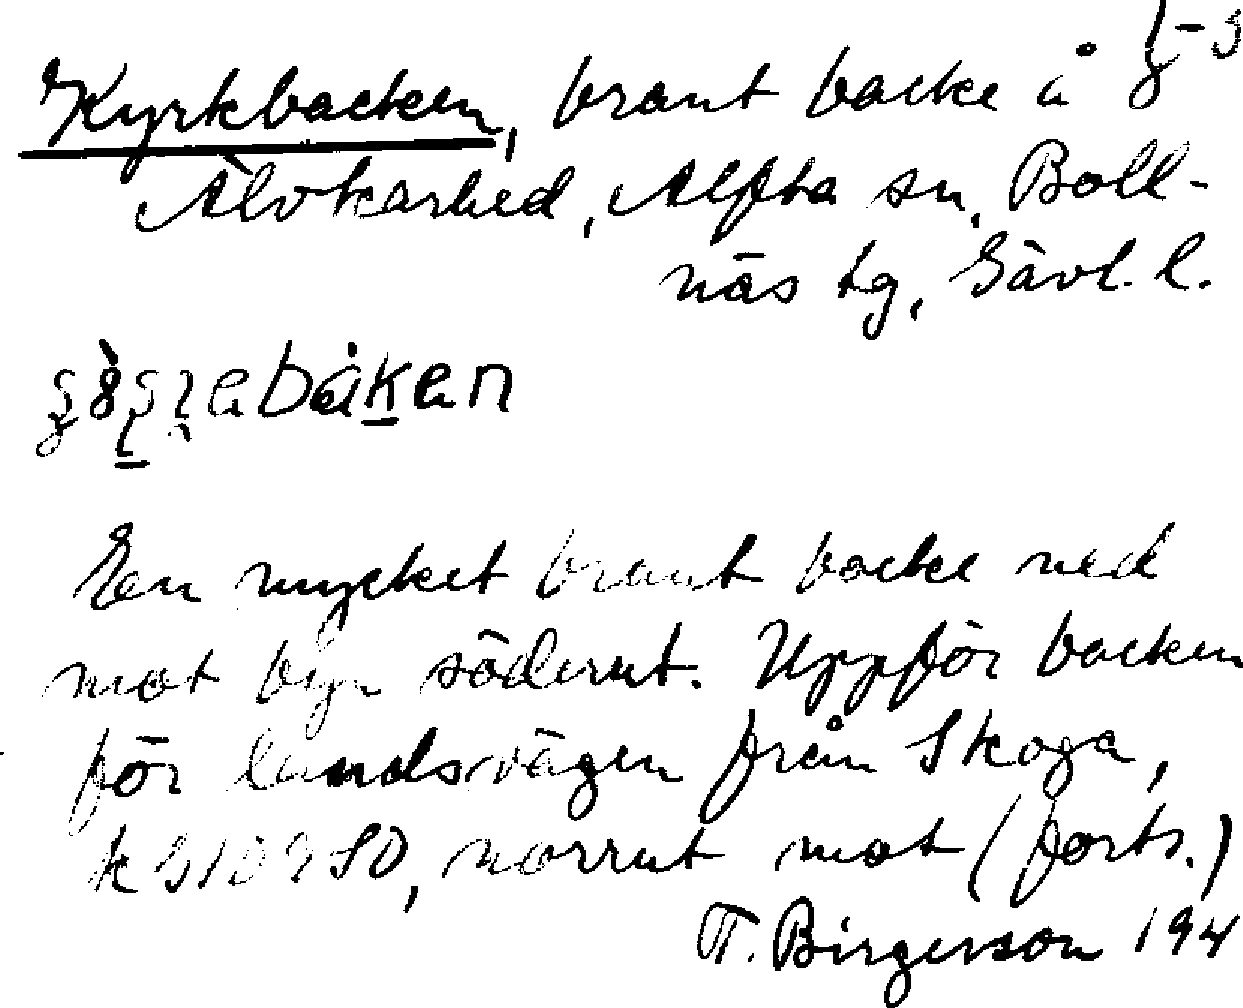 Kyrkbacken, brant backe å
Älvkarhed, Alfta sn, Boll-
näs tg, Gävl. l.
En mycket brant backe ned
mot byn söderut. Uppför backen
för landsvägen från Skoga,
norrut mot (forts.)
T. Birgerson 194